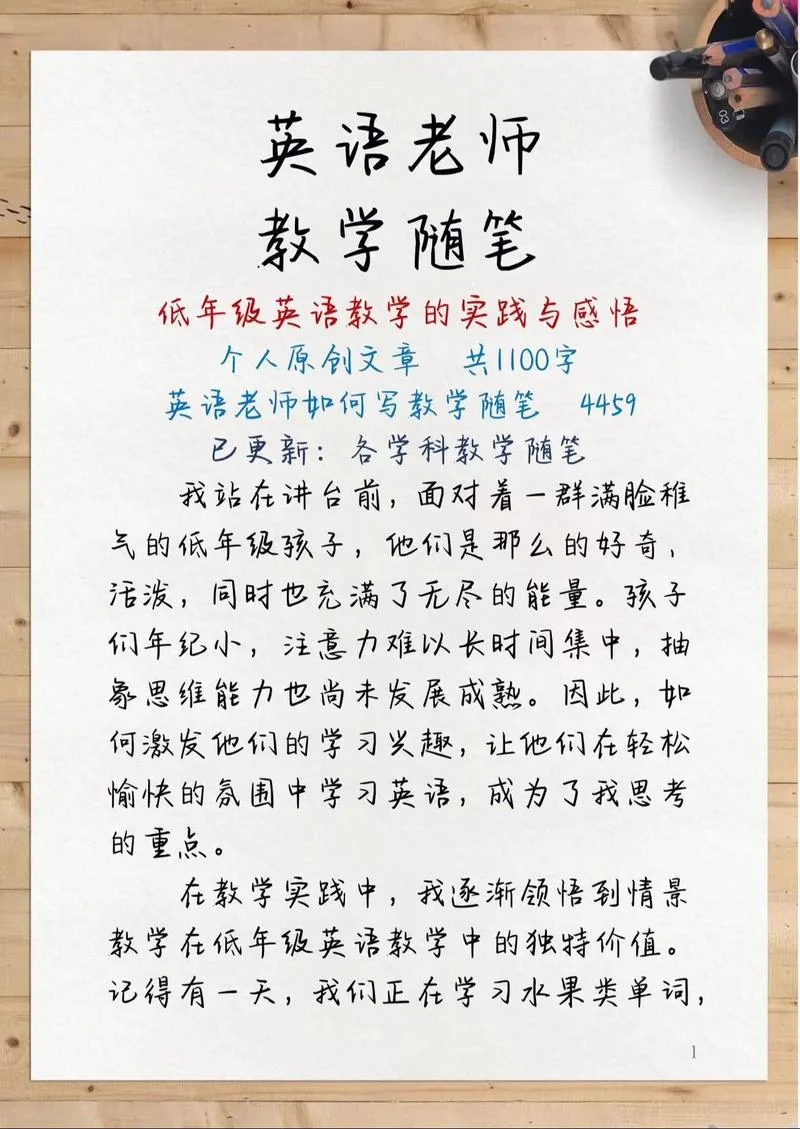 英语老师
教学随笔
低年级英语教学的实践与感悟
个人原创文章 共1100字
英语老师如何写教学随笔 4459
已更新：各学科教学随笔
我站在讲台前，面对着一群满脸稚
气的低年级孩子，他们是那么的好奇、
活泼，同时也充满了无尽的能量。孩子
们年纪小，注意力难以长时间集中，抽
象思维能力也尚未发展成熟。因此，如
何激发他们的学习兴趣，让他们在轻松
愉快的氛围中学习英语，成为了我思考
的重点。
在教学实践中，我逐渐领悟到情景
教学在低年级英语教学中的独特价值。
记得有一天，我们正在学习水果类单词，
1
03